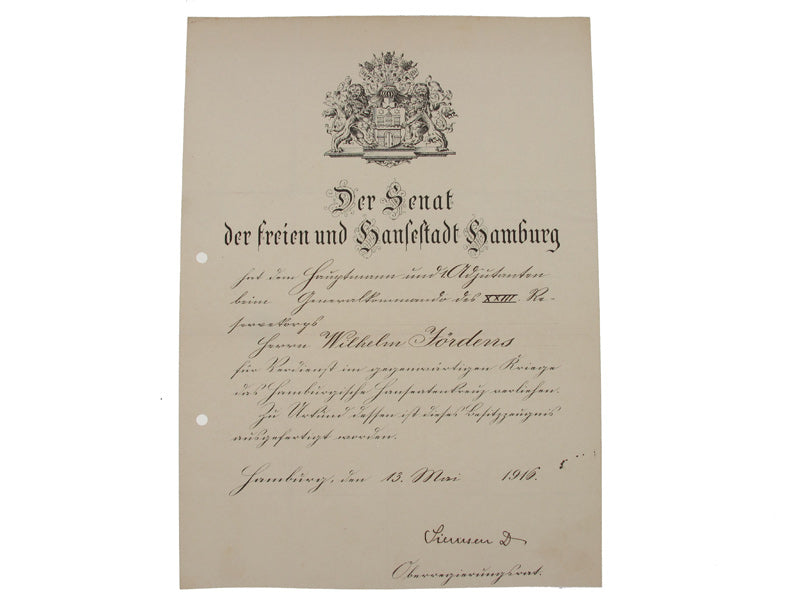 Der Senat
der freien und Hansestadt Hamburg
hat dem Hauptmann und Adjutanten
beim Generalkommando des XXIII. Re-
servekorps
Herrn Wilhelm Jördens
für Verdienst im gegenwärtigen Kriege
das Hamburgische Hanseatenkreuz verliehen.
Zu Urkund dessen ist dieses Besitzzeugnis
ausgefertigt worden.
Hamburg, den 13. Mai 1916.
Siemsen D
Oberregierungsrat.